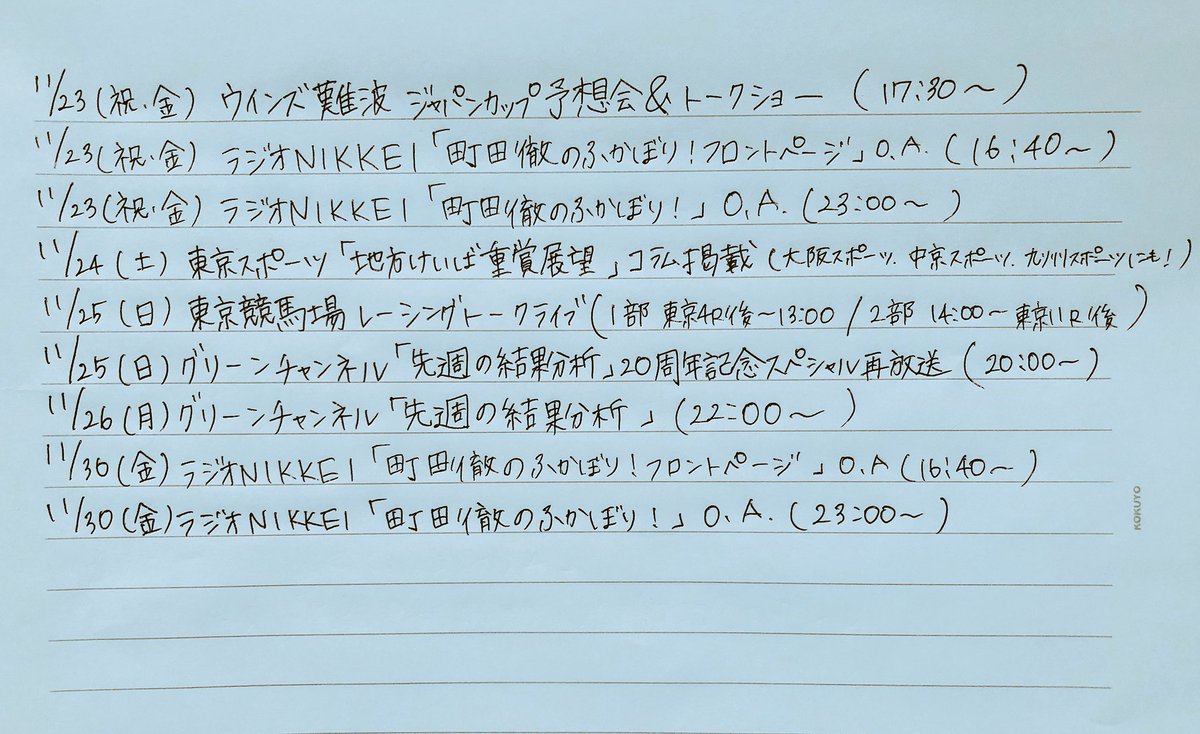 11/23(祝・金) ウインズ難波 ジャパンカップ予想会&トークショー (17:30〜)
11/23(祝・金) ラジオNIKKEI「町田徹のふかぼり!フロントページ」O.A. (16:40〜)
11/23(祝・金) ラジオNIKKEI「町田徹のふかぼり!」O.A. (23:00〜)
11/24(土) 東京スポーツ「地方けいば重賞展望」コラム掲載 (大阪スポーツ、中京スポーツ、九州スポーツにも!)
11/25(日) 東京競馬場 レーシングトークライブ(1部 東京4R後〜13:00 / 2部 14:00〜東京11R後)
11/25(日) グリーンチャンネル「先週の結果分析」20周年記念スペシャル再放送 (20:00〜)
11/26(月) グリーンチャンネル「先週の結果分析」(22:00〜)
11/30(金) ラジオNIKKEI「町田徹のふかぼり!フロントページ」O.A (16:40〜)
11/30(金) ラジオNIKKEI「町田徹のふかぼり!」O.A. (23:00〜)
KOKUYO